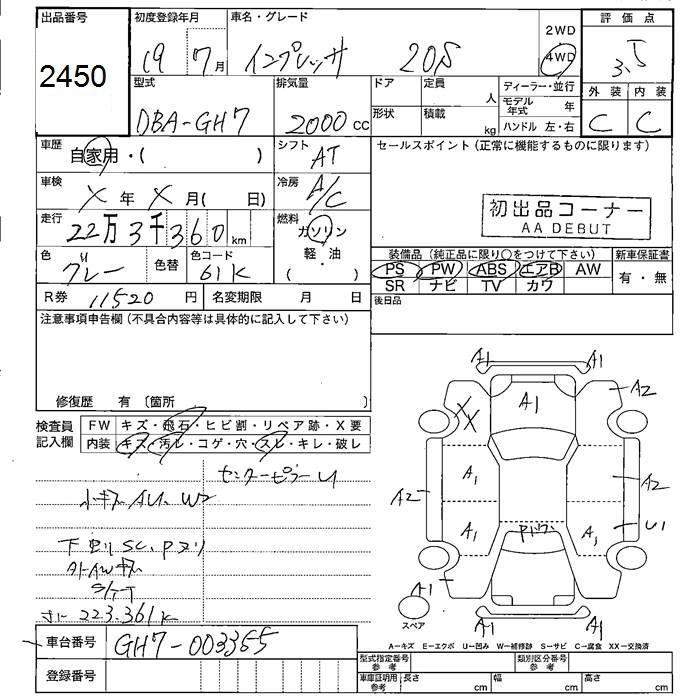 出品番号 初度登録年月 車名・グレード 2WD 評価点
2450 19 7月 インプレッサ 20S 4WD 3.5
型式 排気量 ドア 定員 人 ディーラー・並行 外装 内装
DBA-GH7 2000cc 形状 積載 kg モデル年式 年 ハンドル 左・右 C C
車歴 自家用・( ) シフト AT セールスポイント(正常に機能するものに限ります)
車検 X年 X月( 日) 冷房 A/C 初出品コーナー
AA DEBUT
走行 22万3千360km 燃料 ガソリン
軽・油
( )
色 グレー 色替 色コード 61K 装備品(純正品に限り〇をつけて下さい) 新車保証書
PS PW ABS エアB AW 有・無
SR ナビ TV カワ
R券 11520円 名変期限 月 日 後日品
注意事項申告欄(不具合内容等は具体的に記入して下さい)
修復歴 有〔箇所 〕
検査員 FW キズ・飛石・ヒビ割・リペア跡・X要
記入欄 内装 キズ・汚レ・コゲ・穴・スレ・キレ・破レ
センターピラーU
小キズ AU、W2
下廻りSC、Pヌリ
S/T
223.361K
車台番号 GH7-003355
登録番号
A1 A1
A1 A2
XX
A1 A2
A2
A1 A1 U1
Pドワ
A1
A1 A1
スペア
A-キズ E-エクボ U-凹み W-補修跡 S-サビ C-腐食 XX-交換済
型式指定番号 参考 類別区分番号 参考
車庫証明用 参考 長さ cm 幅 cm 高さ cm